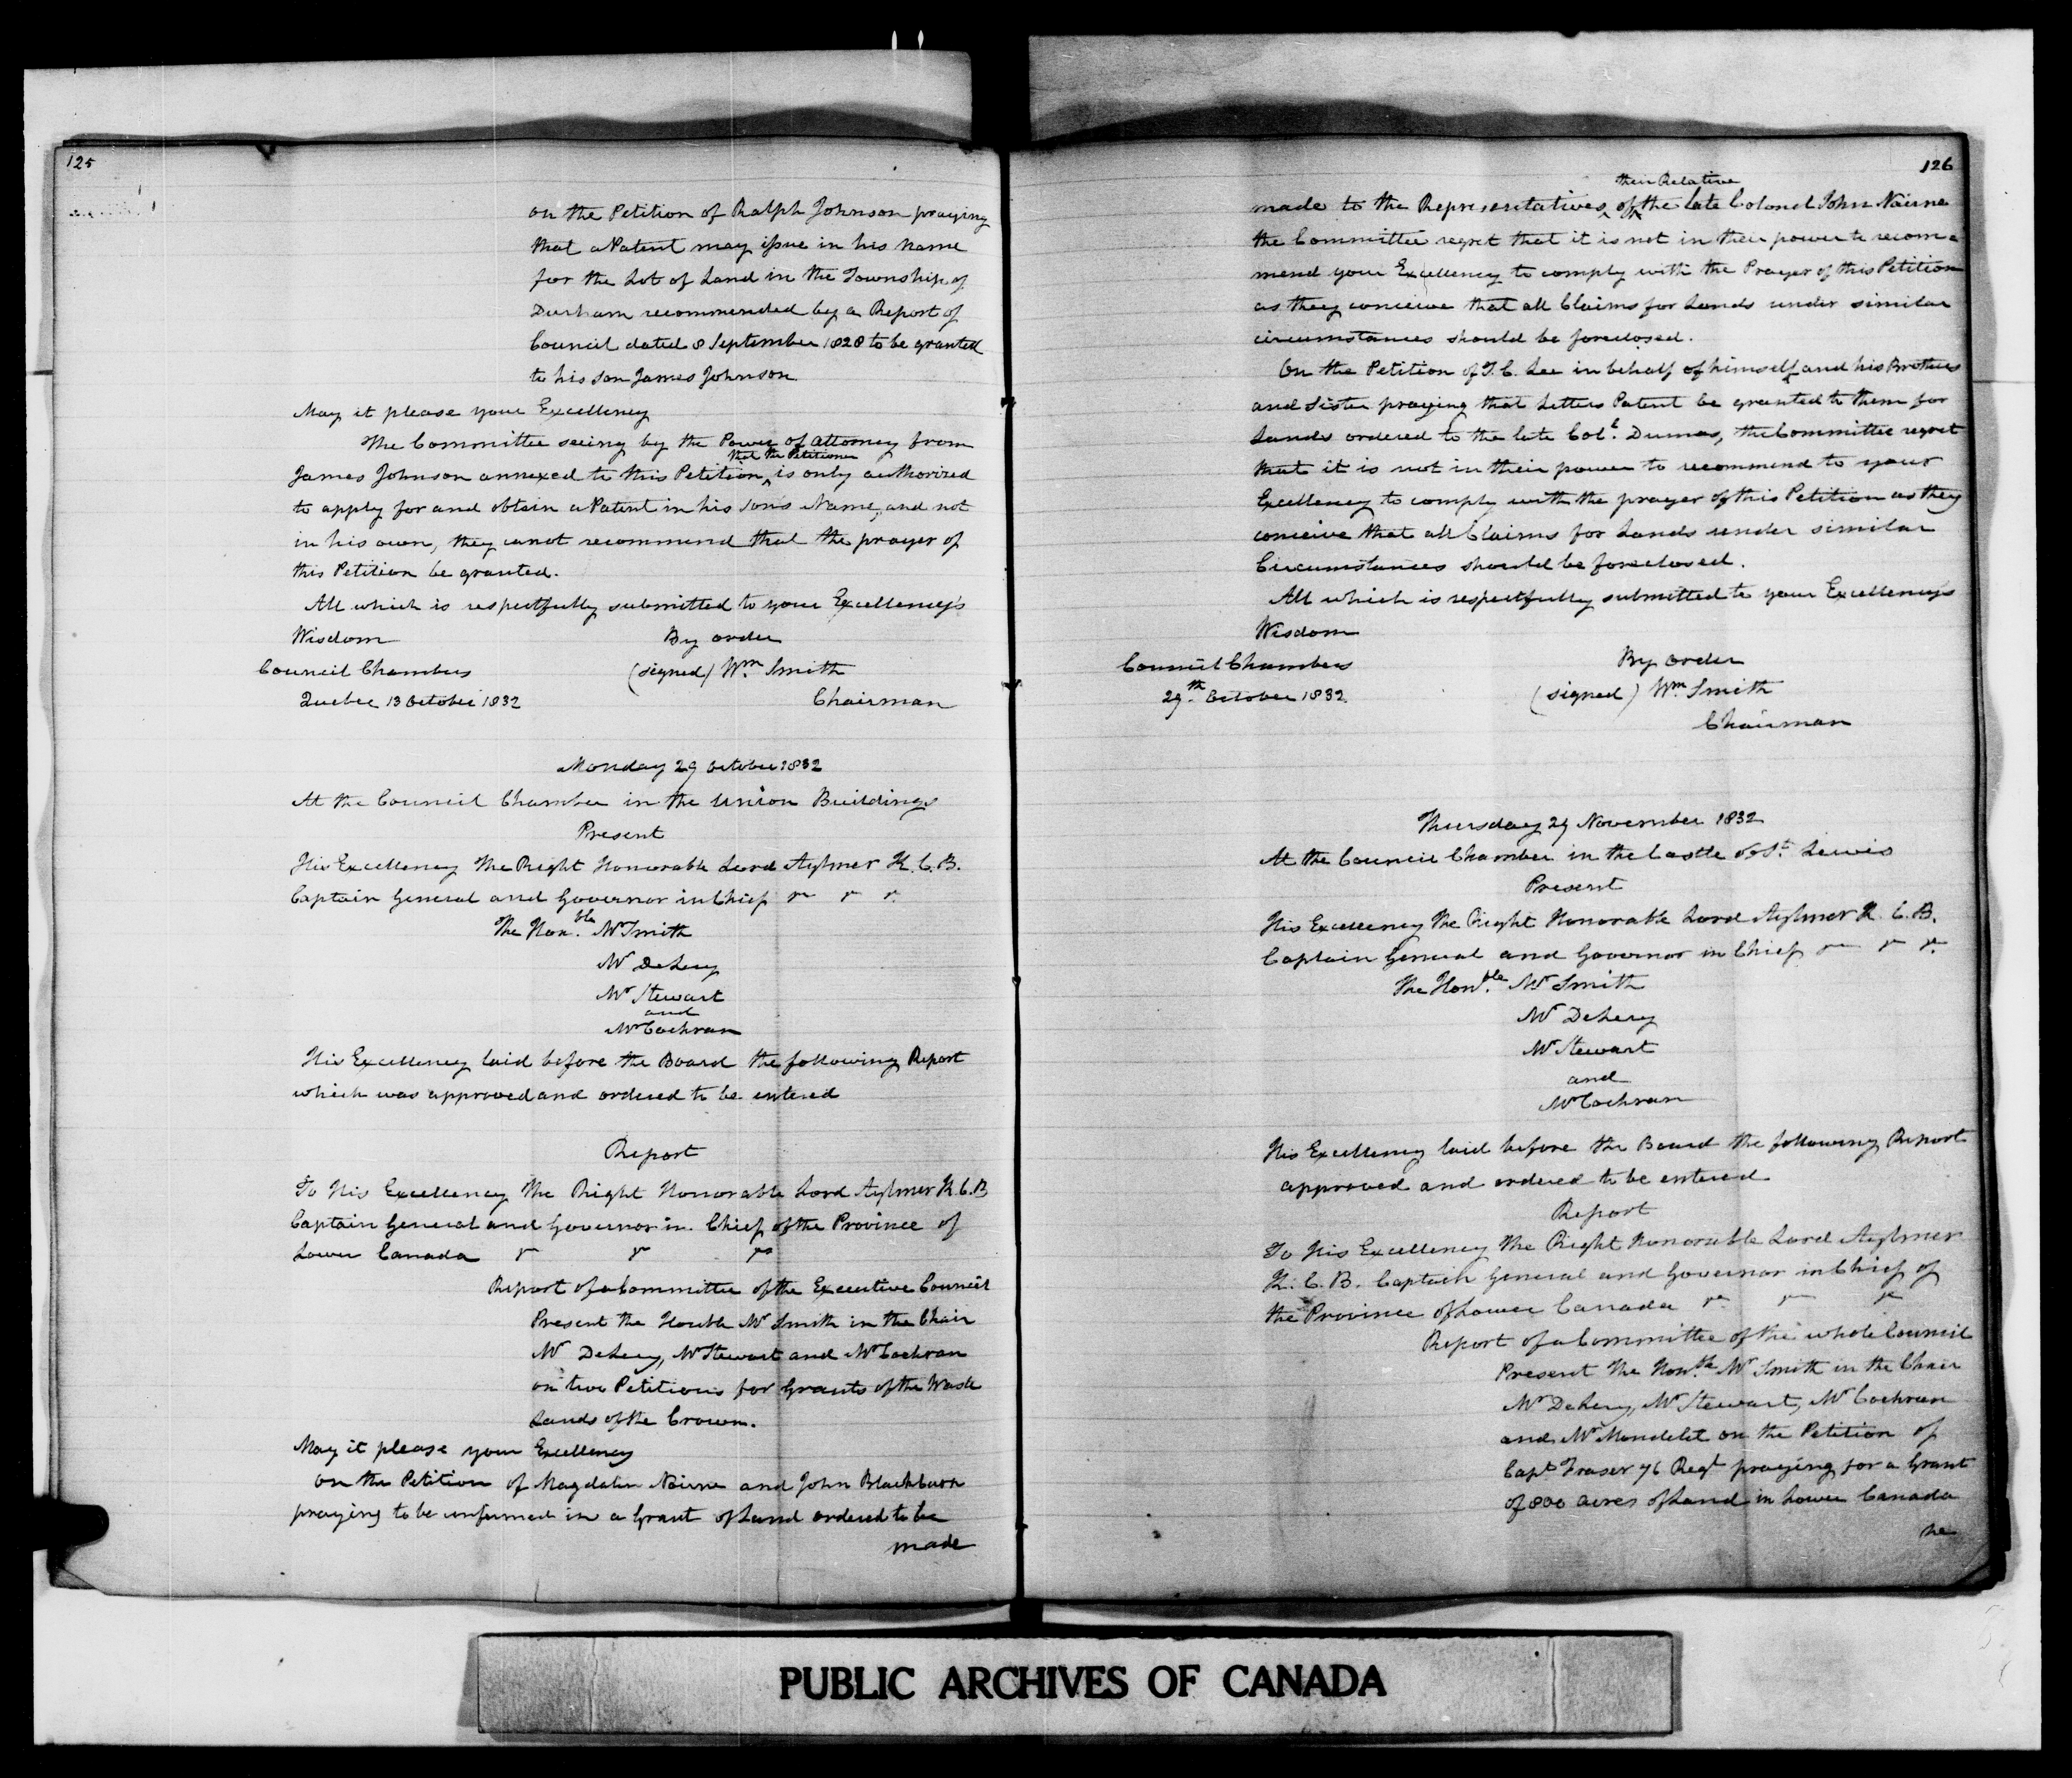 125
on the Petition of Ralph Johnson praying
that a Patent may issue in his name
for the Lot of Land in the Township of
Durham recommended by a Report of
Council dated 8 September 1828 to be granted
to his son James Johnson
May it please your Excellency
The Committee seeing by the Power of Attorney from
that the Petitioner
James Johnson annexed to this Petition ‸ is only authorized
to apply for and obtain a Patent in his son's Name, and not
in his own, they canot recommend that the prayer of
this Petition be granted.
All which is respectfully submitted to your Excellency's
Wisdom By order
Council Chambers (signed) Wm Smith
Quebec 13 October 1832 Chairman
Monday 29 October 1832
At the Council Chamber in the Union Buildings
Present
His Excellency The Right Honorable Lord Aylmer K.C.B.
Captain General and Governor in Chief
The Honble Mr Smith
Mr DeLery
Mr Stewart
and
Mr Cochran
His Excellency laid before the Board the following Report
which was approved and ordered to be entered
Report
To His Excellency The Right Honorable Lord Aylmer K.C.B
Captain General and Governor in Chief of the Province of
Lower Canada
Report of a Committee of the Executive Council
Present the Honble Mr Smith in the Chair
Mr DeLery, Mr Stewart and Mr Cochran
on two Petitions for Grants of the Waste
Lands of the Crown.
May it please your Excellency
On the Petition of Magdalen Nairne and John Blackburn
praying to be in a Grant of Land ordered to be
made
126
their Relative
made to the Representatives ‸ of the late Colonel John Nairne
the Committee regret that it is not in their power to recom-
mend your Excellency to comply with the Prayer of this Petition
as they conceive that all Claims for Lands under similar
circumstances should be foreclosed.
On the Petition of T. C. Lee in behalf of himself and his Brothers
and Sister praying that Letters Patent be granted to them for
Lands ordered to the late Col. Dumas, the Committee regret
that it is not in their power to recommend to your
Excellency to comply with the prayer of this Petition as they
conceive that all Claims for Lands under similar
Circumstances should be foreclosed.
All which is respectfully submitted to your Excellency's
Wisdom
Council Chambers By order
29th October 1832 (signed) Wm Smith
Chairman
Thursday 29 November 1832
At the Council Chamber in the Castle of St Lewis
Present
His Excellency The Right Honorable Lord Aylmer K.C.B.
Captain General and Governor in Chief
The Honble Mr Smith
Mr DeLery
Mr Stewart
and
Mr Cochran
His Excellency laid before the Board the following Report
approved and ordered to be entered
Report
To His Excellency The Right Honorable Lord Aylmer
K.C.B. Captain General and Governor in Chief of
the Province of Lower Canada
Report of a Committee of the whole Council
Present The Honble Mr Smith in the Chair
Mr DeLery, Mr Stewart, Mr Cochran
and Mr Mondelet on the Petition of
Capt Fraser 76 Regt praying for a Grant
of 800 acres of Land in Lower Canada
he
PUBLIC ARCHIVES OF CANADA